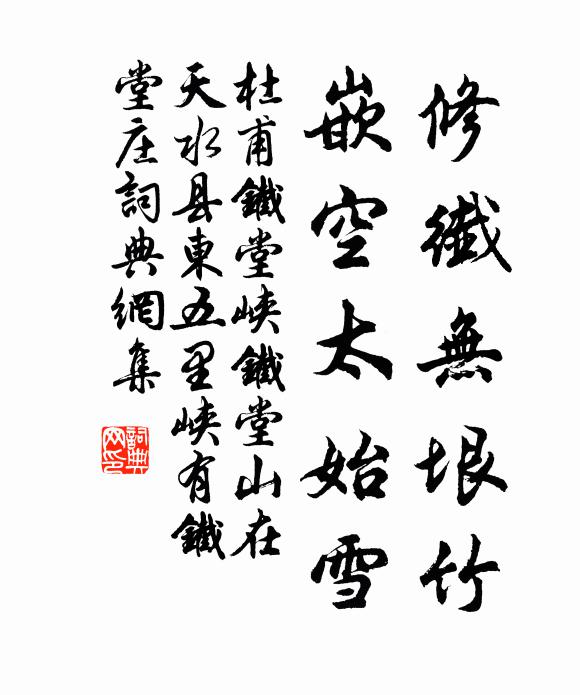 修纖無垠竹
嵌空太始雪
杜甫鐵堂峽鐵堂山在
天水县東五里峽有鐵
堂庄詞典網集
詞典
网印